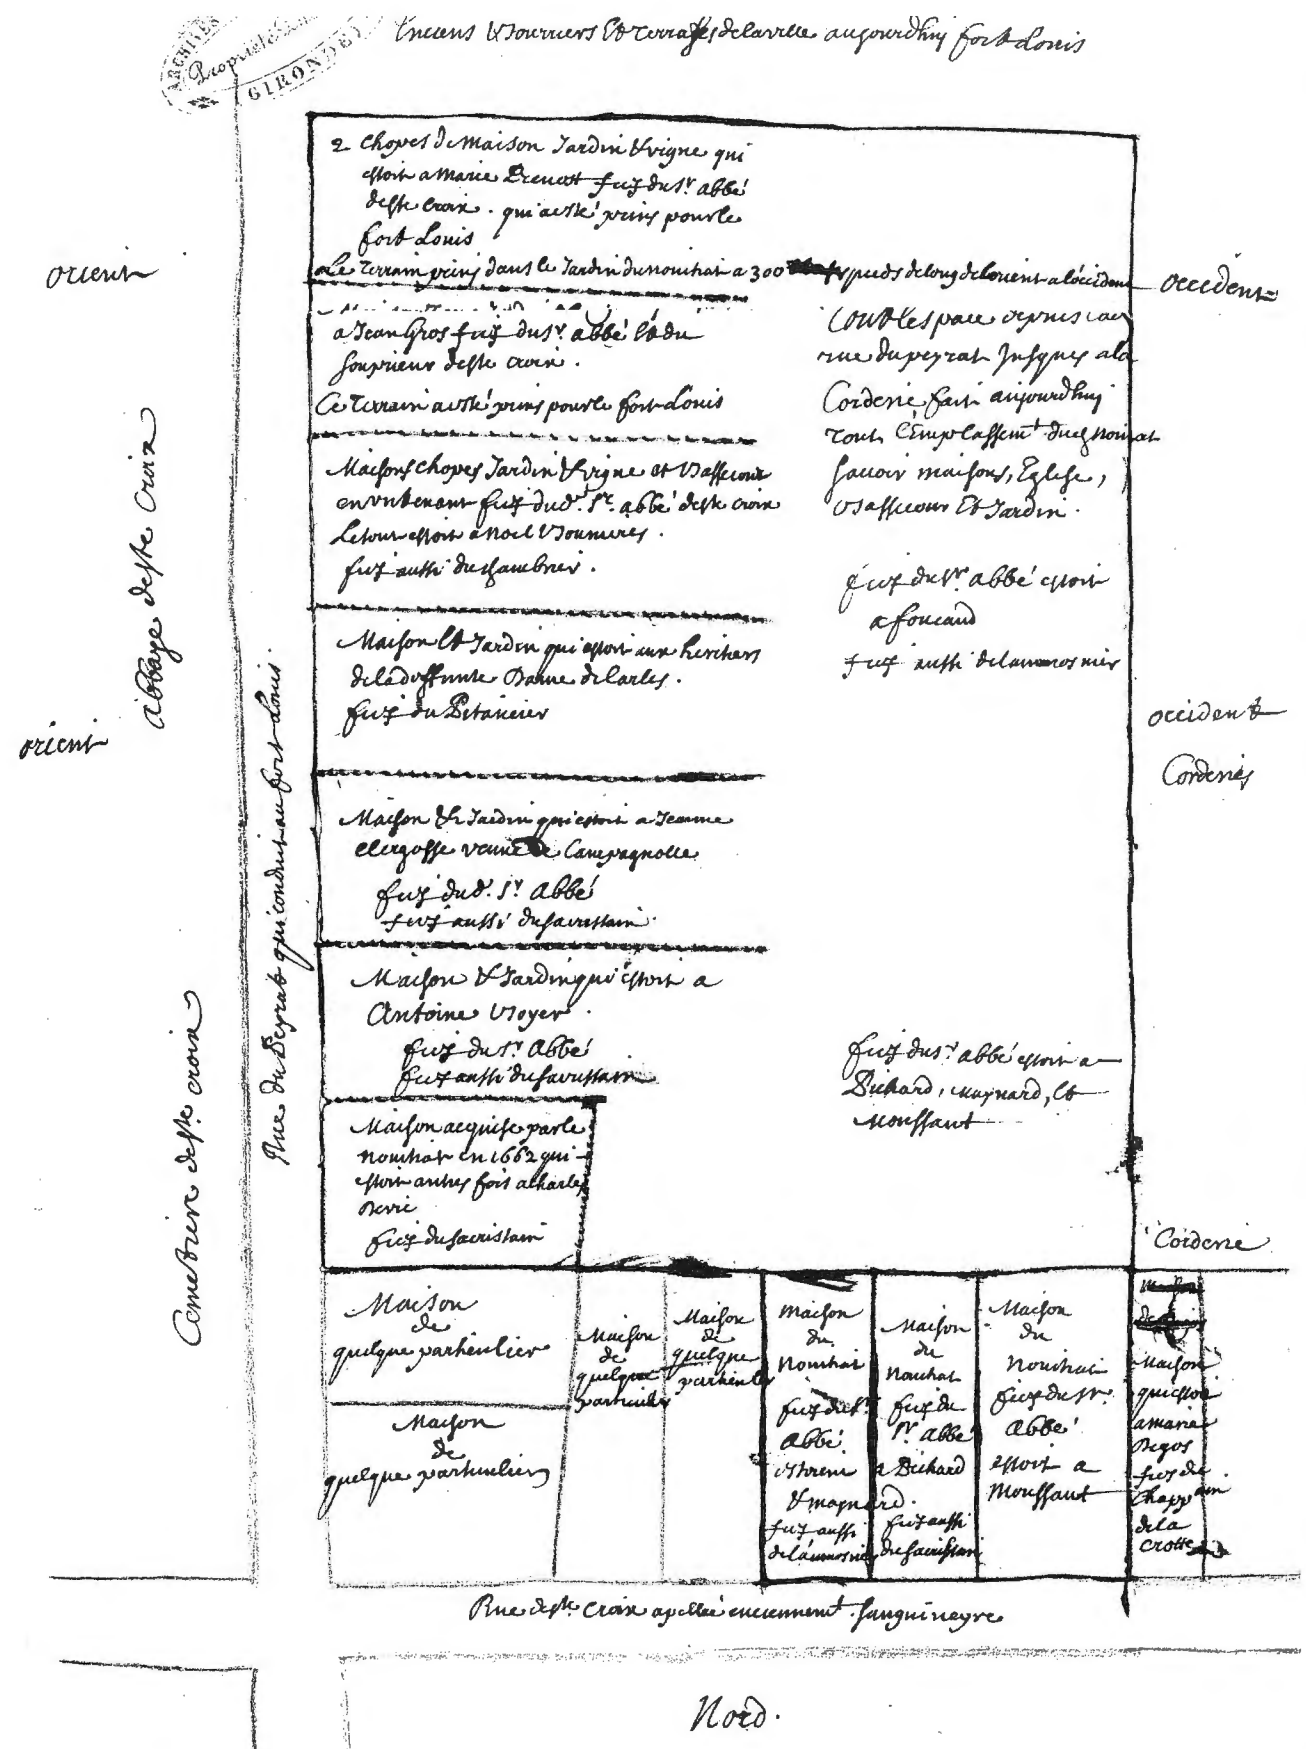 ARCHIVES
Propriété
GIRONDE
Enciens & Terrasses dela ville aujourdhuy fort Louis
2 Chopes de Maison Jardin & vigne qui
estoit a Marie fiez du Sr abbé
de Ste croix . qui a esté prins pour le
fort Louis
Le Terrain prins dans le Jardin du novitiat a 300 pieds de long de lorient a loccident
a Jean Gros fiez du Sr. abbé & du
souprieur de Ste croix .
Ce Terrain a esté prins pour le fort Louis
Maisons chopes Jardin & vigne et bassecour
fiez dud. Sr. abbé de Ste croix
Le tout estoit a Noel
fiez aussi du chambrier .
Maison & Jardin qui estoit aux heritiers
de la deffunte Dame de Larles .
fiez du Pitancier
Maison & Jardin qui estoit a Jeanne
veuve de Campagnolle
fiez dud. Sr Abbé
fiez aussi du sacristain .
Maison & Jardin qui estoit a
Antoine Boyer .
fiez du Sr. Abbé
fiez aussi du sacristain
Maison acquise par le
novitiat en 1662 qui
estoit autres fois a Charles
fiez du sacristain
tout lespace depuis
rue du peyrat jusques a la
Corderie fait aujourdhuy
tout l'Emplassemt. du novitiat
savoir maisons, Eglise,
bassecour & Jardin .
fiez du Sr abbé estoit
a foucaud
fiez aussi de laumosnier
fiez du Sr abbé estoit a
Bichard, maynard, &
Moussaut
orient
abbaye de Ste Croix
orient
Cemetiere de Ste. croix
Rue du Peyrat qui conduit au fort Louis .
occident
occident
Corderies
Corderie
Maison
de
quelque particulier
Maison
de
quelque particulier
Maison
de
quelque
particulier
Maison
de
quelque
particulier
maison
du
Novitiat
fiez du Sr
Abbé
& maynard .
fiez aussi
de laumosnier
Maison
du
Novitiat
fiez du
Sr abbé
a Bichard
fiez aussi
du sacristain
Maison
du
Novitiat
fiez du Sr.
Abbé
estoit a
Moussaut
Maison
qui estoit
a marie
Degos
fiez du
Chappelain
de la
crotte
Rue de Ste. Croix apellée enciennemt. Sanguineyre
Nord .